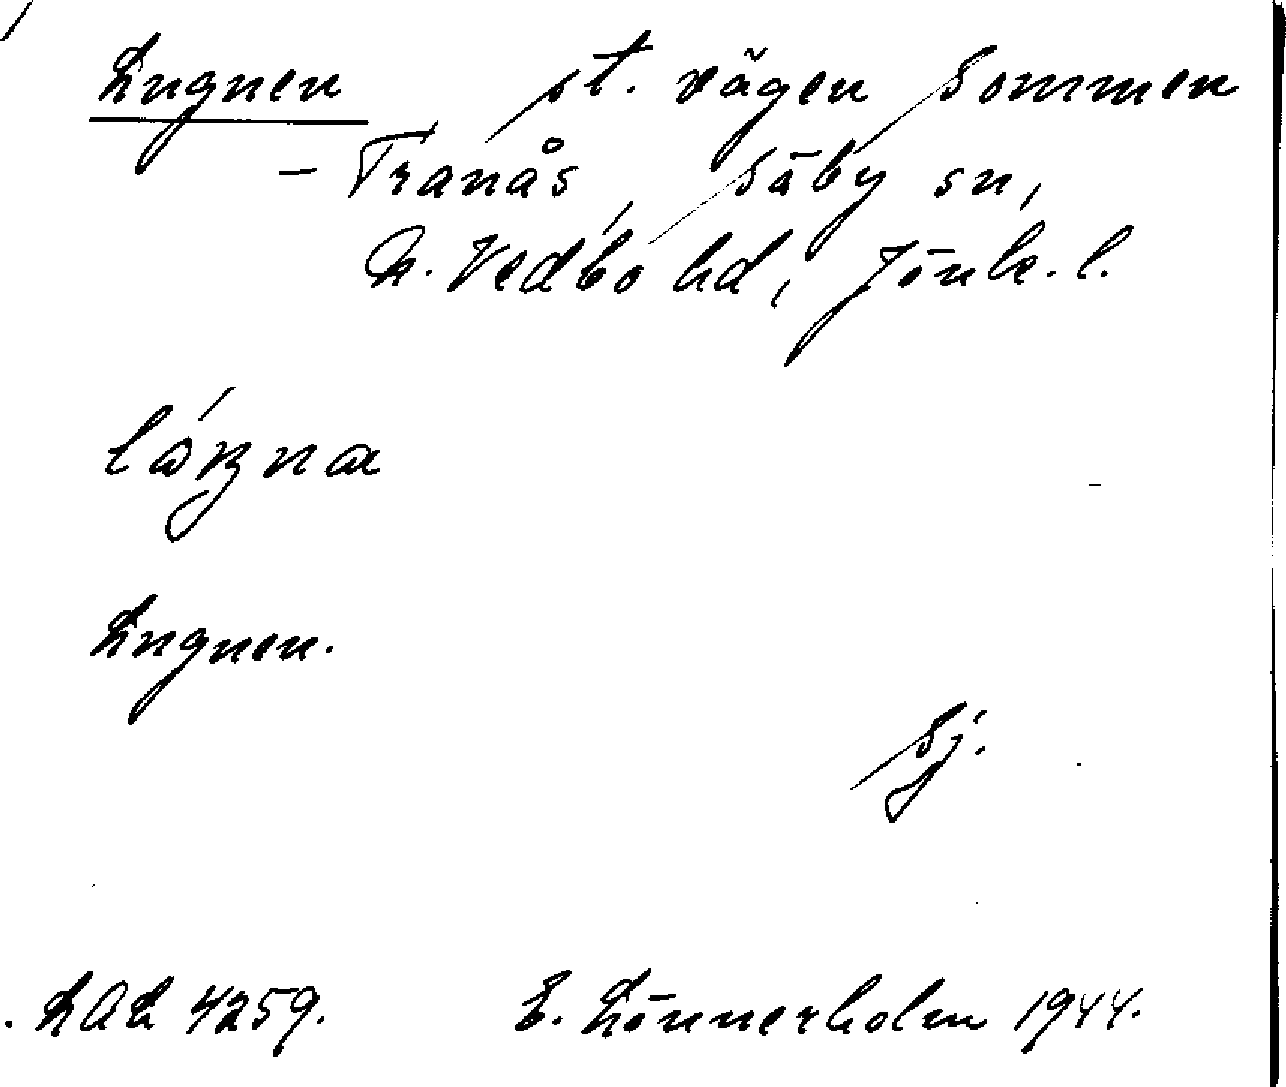 Lugnen st. vägen Sommen
- Tranås, Säby sn,
N. Vedbo hd, Jönk. l.
Lugnen.
Sj.
LAL 4259. E. Lönnerholm 1944.